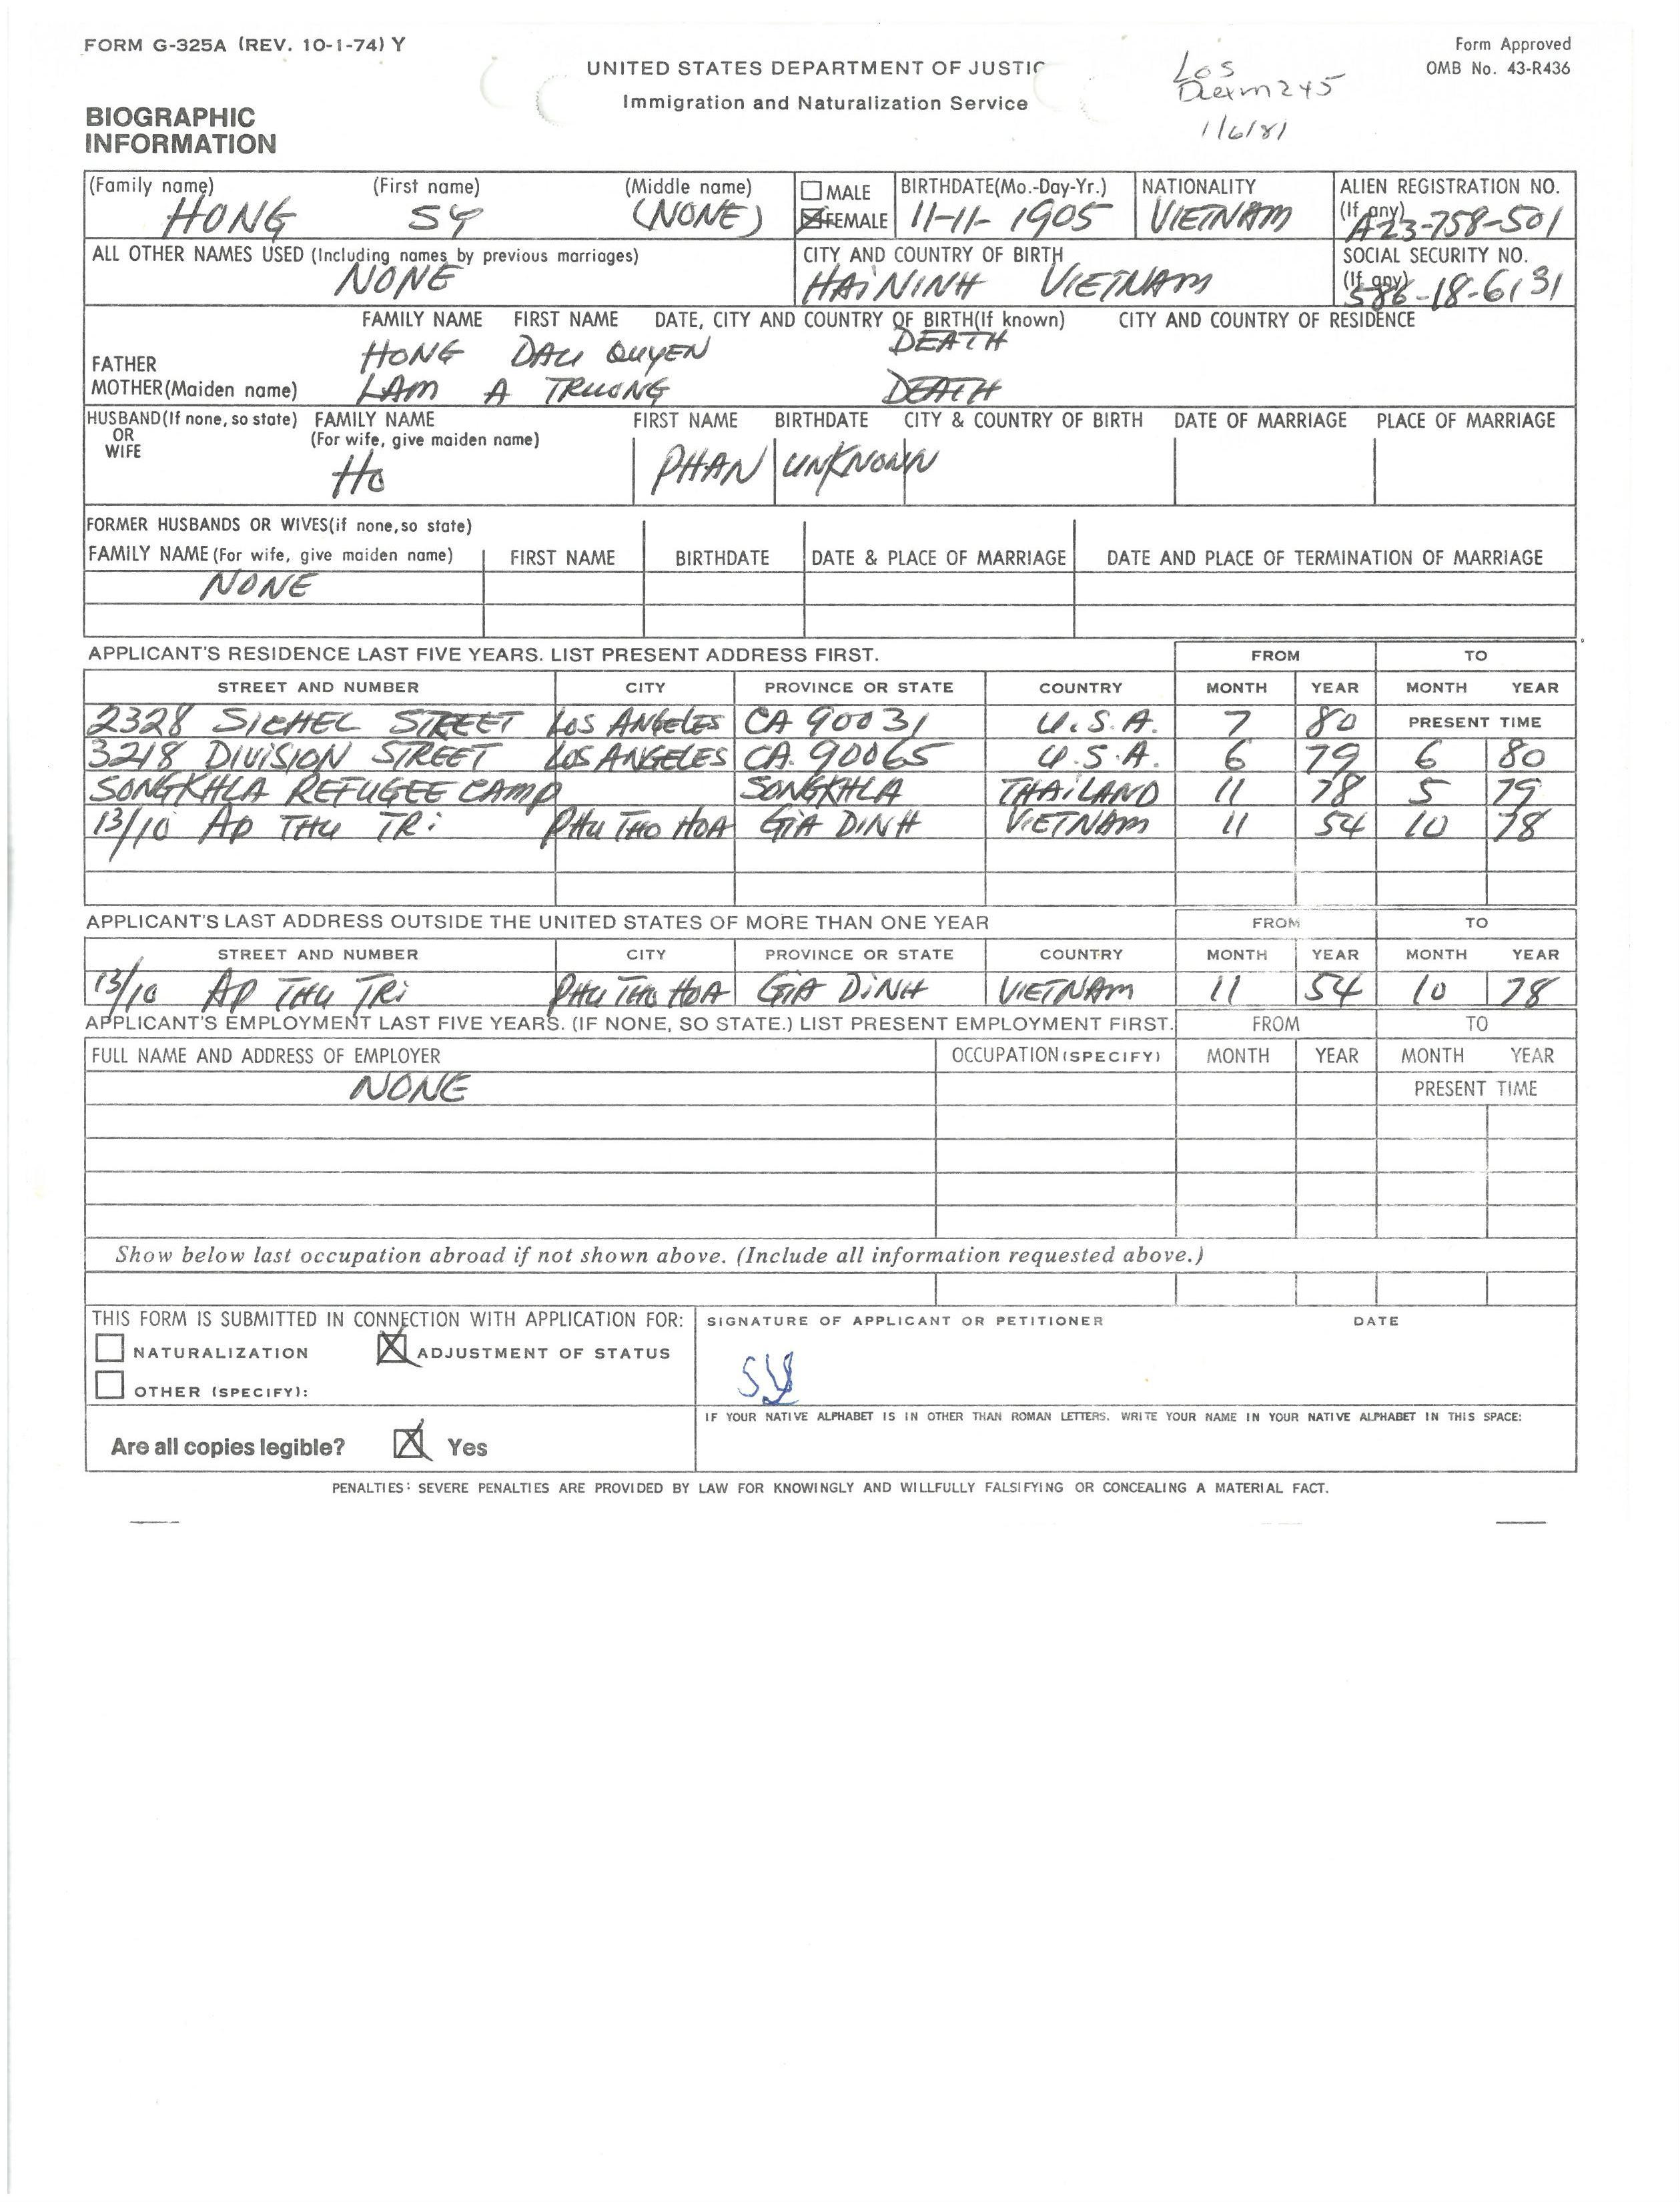 FORM G-325A (REV. 10-1-74) Y
Form Approved
OMB No. 43-R436
UNITED STATES DEPARTMENT OF JUSTIC
Immigration and Naturalization Service
Los
245
1/6/81
BIOGRAPHIC
INFORMATION
(Family name) (First name) (Middle name) MALE BIRTHDATE(Mo.-Day-Yr.) NATIONALITY ALIEN REGISTRATION NO.
HONG SY (NONE) FEMALE 11-11-1905 VIETNAM (If any) A23-758-501
ALL OTHER NAMES USED (Including names by previous marriages) CITY AND COUNTRY OF BIRTH SOCIAL SECURITY NO.
NONE HAI NINH VIETNAM (If any) 586-18-6131
FAMILY NAME FIRST NAME DATE, CITY AND COUNTRY OF BIRTH(If known) CITY AND COUNTRY OF RESIDENCE
FATHER HONG DAU QUYEN DEATH
MOTHER(Maiden name) LAM A TRUONG DEATH
HUSBAND(If none, so state) FAMILY NAME FIRST NAME BIRTHDATE CITY & COUNTRY OF BIRTH DATE OF MARRIAGE PLACE OF MARRIAGE
OR (For wife, give maiden name)
WIFE
Ho PHAN UNKNOWN
FORMER HUSBANDS OR WIVES(if none,so state)
FAMILY NAME (For wife, give maiden name) FIRST NAME BIRTHDATE DATE & PLACE OF MARRIAGE DATE AND PLACE OF TERMINATION OF MARRIAGE
NONE
APPLICANT'S RESIDENCE LAST FIVE YEARS. LIST PRESENT ADDRESS FIRST. FROM TO
STREET AND NUMBER CITY PROVINCE OR STATE COUNTRY MONTH YEAR MONTH YEAR
2328 SICHEL STREET LOS ANGELES CA 90031 U.S.A. 7 80 PRESENT TIME
3218 DIVISION STREET LOS ANGELES CA. 90065 U.S.A. 6 79 6 80
SONGKHLA REFUGEE CAMP SONGKHLA THAILAND 11 78 5 79
13/10 AP THU TRI PHU THO HOA GIA DINH VIETNAM 11 54 10 78
APPLICANT'S LAST ADDRESS OUTSIDE THE UNITED STATES OF MORE THAN ONE YEAR FROM TO
STREET AND NUMBER CITY PROVINCE OR STATE COUNTRY MONTH YEAR MONTH YEAR
13/10 AP THU TRI PHU THO HOA GIA DINH VIETNAM 11 54 10 78
APPLICANT'S EMPLOYMENT LAST FIVE YEARS. (IF NONE, SO STATE.) LIST PRESENT EMPLOYMENT FIRST. FROM TO
FULL NAME AND ADDRESS OF EMPLOYER OCCUPATION (SPECIFY) MONTH YEAR MONTH YEAR
NONE PRESENT TIME
Show below last occupation abroad if not shown above. (Include all information requested above.)
THIS FORM IS SUBMITTED IN CONNECTION WITH APPLICATION FOR: SIGNATURE OF APPLICANT OR PETITIONER DATE
NATURALIZATION ADJUSTMENT OF STATUS
OTHER (SPECIFY):
SY
IF YOUR NATIVE ALPHABET IS IN OTHER THAN ROMAN LETTERS. WRITE YOUR NAME IN YOUR NATIVE ALPHABET IN THIS SPACE:
Are all copies legible? Yes
PENALTIES: SEVERE PENALTIES ARE PROVIDED BY LAW FOR KNOWINGLY AND WILLFULLY FALSIFYING OR CONCEALING A MATERIAL FACT.